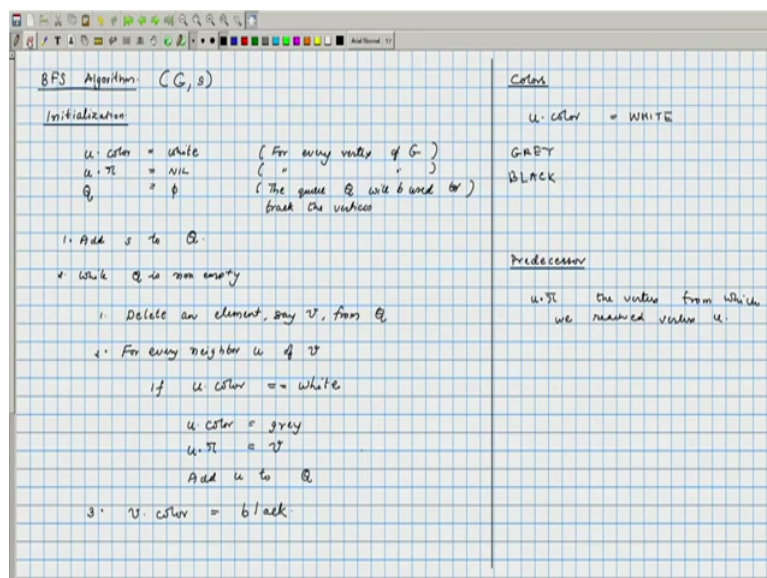 BFS Algorithm. (G, s)
Initialization
u. color = white ( For every vertex of G )
u. π = NIL ( " " )
Q = φ ( The queue Q will b used to )
track the vertices
1. Add s to Q.
2. While Q is non empty
1. Delete an element, say v, from Q
2. For every neighbor u of v
if u. color == white
u. color = grey
u. π = v
Add u to Q
3. v. color = black.
Colors
u. color = WHITE
GREY
BLACK
Predecessor
u. π the vertex from which
we reached vertex u.